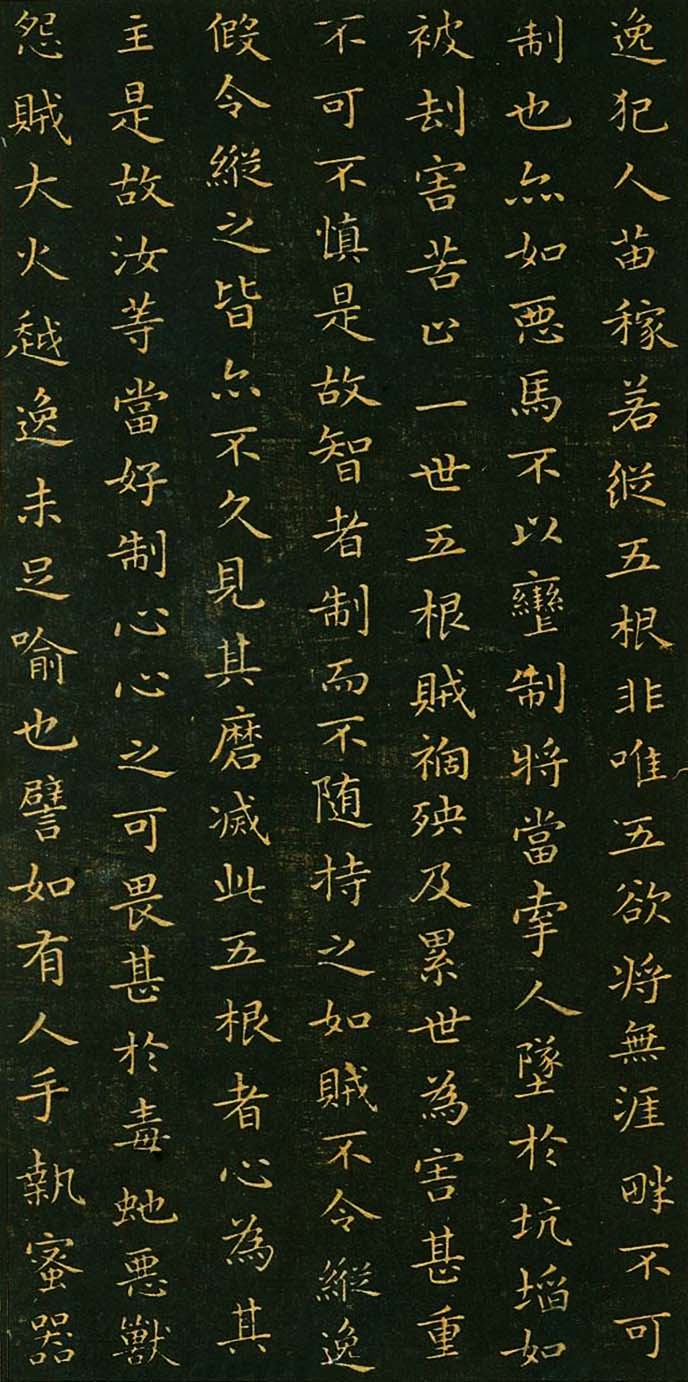 逸犯人苗稼若縱五根非唯五欲將無涯畔不可
制也亦如惡馬不以轡制將當牽人墜於坑埳如
被刧害苦止一世五根賊禍殃及累世為害甚重
不可不慎是故智者制而不随持之如賊不令縱逸
假令縱之皆亦不久見其磨滅此五根者心為其
主是故汝等當好制心心之可畏甚於毒虵惡獸
怨賊大火越逸未足喻也譬如有人手執蜜器